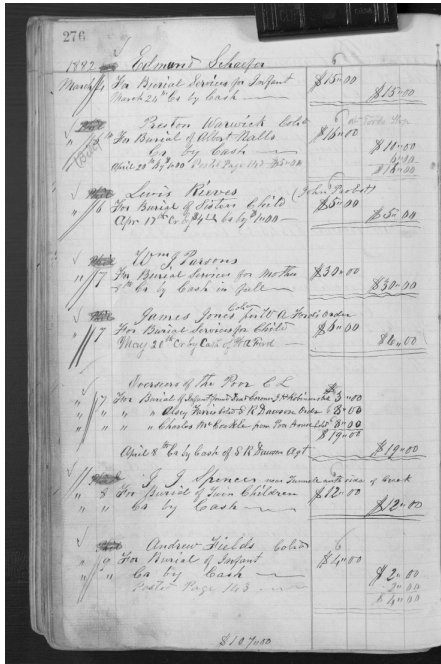 276
1892 Edmund Schaefer
March 1 For Burial Services for Infant $15"00
March 24th Cr by Cash $15"00
Preston Warwick Cold
For Burial of Albert Nalls $16"00
Cr by Cash $10"00
April 20th By 1"00 Posted Page 143 $5"00 6"00
$16"00
Lewis Reeves (John Probst)
6 For Burial of Sisters Child $5"00
Apr 17th Cr by $4"00 by $1"00 $5"00
Wm J Parsons
7 For Burial Services for Mother $30"00
Cr by Cash in full $30"00
James Jones Cold for W A Fords Order
7 For Burial Services for Child $6"00
May 28th Cr by Cash of W A Ford $6"00
Overseers of The Poor C C
7 For Burial of Infant found Dead 3"00
" " " " S R Dawson Order 8"00
" " " Charles McCorkle from Poor House 8"00
$19"00
April 8th Cr by Cash of S R Dawson Agt $19"00
J J Spencer near Tunnel side of Creek
" 8 For Burial of Twin Children $12"00
" " Cr by Cash $12"00
Andrew Fields Colored
" 9 For Burial of Infant $4"00
" " Cr by Cash $2"00
Posted Page 143 2"00
$4"00
$107"00